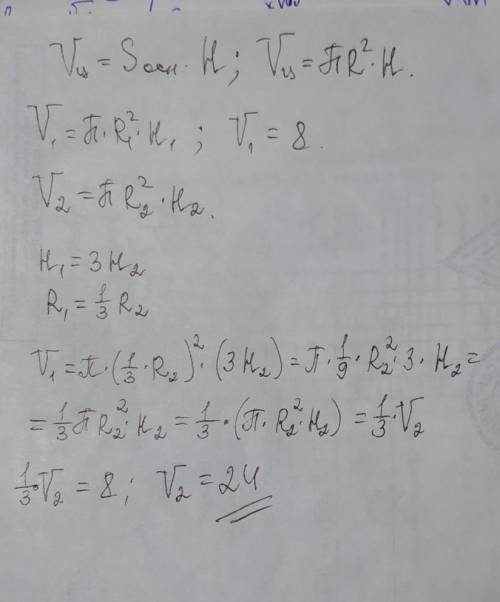 Vц = Sосн. H; Vц = πR²·H.
V₁ = π·R₁²·H₁; V₁ = 8.
V₂ = πR₂²·H₂.
H₁ = 3H₂
R₁ = 1/3 R₂
V₁ = π·(1/3·R₂)²·(3H₂) = π·1/9·R₂²·3·H₂ =
= 1/3 πR₂²·H₂ = 1/3·(π·R₂²·H₂) = 1/3·V₂
1/3·V₂ = 8; V₂ = 24